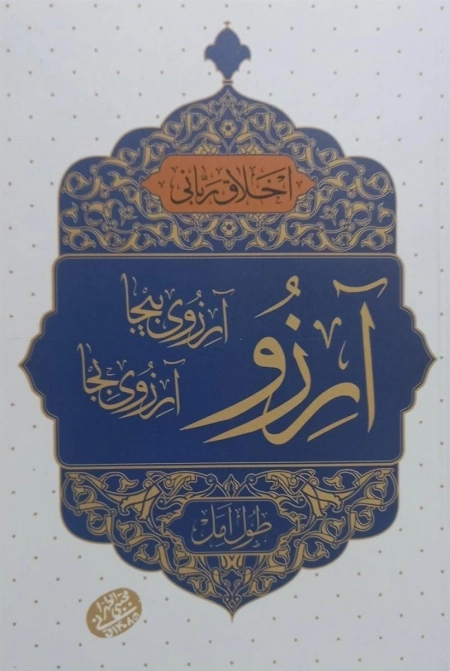 اخلاق ربّانی
آرزو
آرزوی بیجا
آرزوی بجا
طول امل